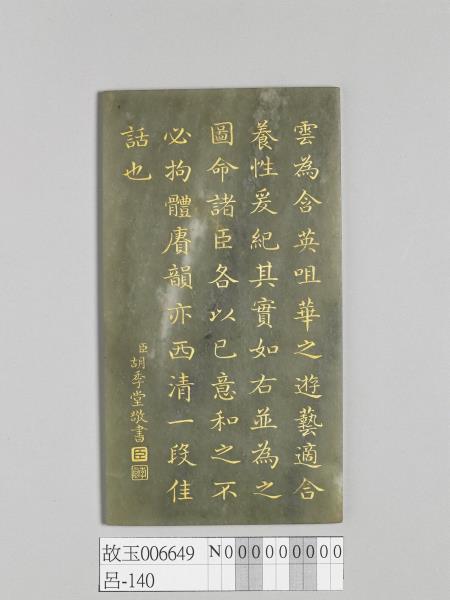 雲為含英咀華之遊藝適合
養性爰紀其實如右並為之
圖命諸臣各以已意和之不
必拘體賡韻亦西清一段佳
話也
臣胡季堂敬書
臣
故玉006649
呂-140
N000000000